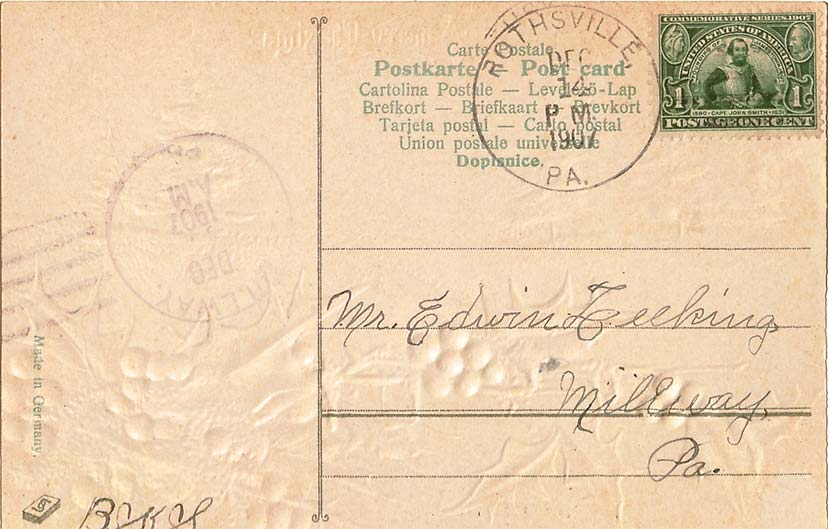 Carte Postale
Postkarte — Post card
Cartolina Postale — Levelező-Lap
Brefkort — Briefkaart — Brevkort
Tarjeta postal — Carto postal
Union postale universelle
Dopisnice.
ROTHSVILLE,
DEC
14
P.M.
1907
PA.
COMMEMORATIVE SERIES 1907
UNITED STATES OF AMERICA
1 1
1580 CAPT. JOHN SMITH 1631
POSTAGE ONE CENT
A.M.
1907
DEC
Mr. Edwin
Millway,
Pa.
Made in Germany.